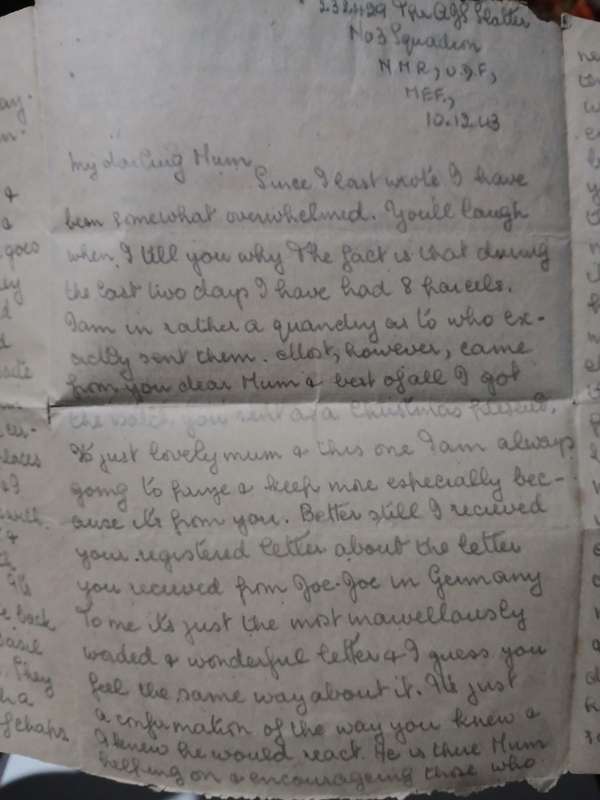 232429 Tpr A G S Slatter
No 3 Squadron
N M R, U.D.F,
MEF.,
10.12.43
My darling Mum
Since I last wrote I have
been somewhat overwhelmed. You'll laugh
when I tell you why The fact is that during
the last two days I have had 8 parcels.
I am in rather a quandry as to who ex-
actly sent them. Most, however, came
from you dear Mum & best of all I got
the watch you sent as a Christmas present.
Its just lovely mum & this one I am always
going to prize & keep more especially bec-
ause its from you. Better still I recieved
your registered letter about the letter
you recieved from Joe-Joe in Germany
To me its just the most marvellously
worded & wonderful letter & I guess you
feel the same way about it. Its just
a confirmation of the way you knew &
I knew he would react. He is there Mum
helping on & encourageing those who